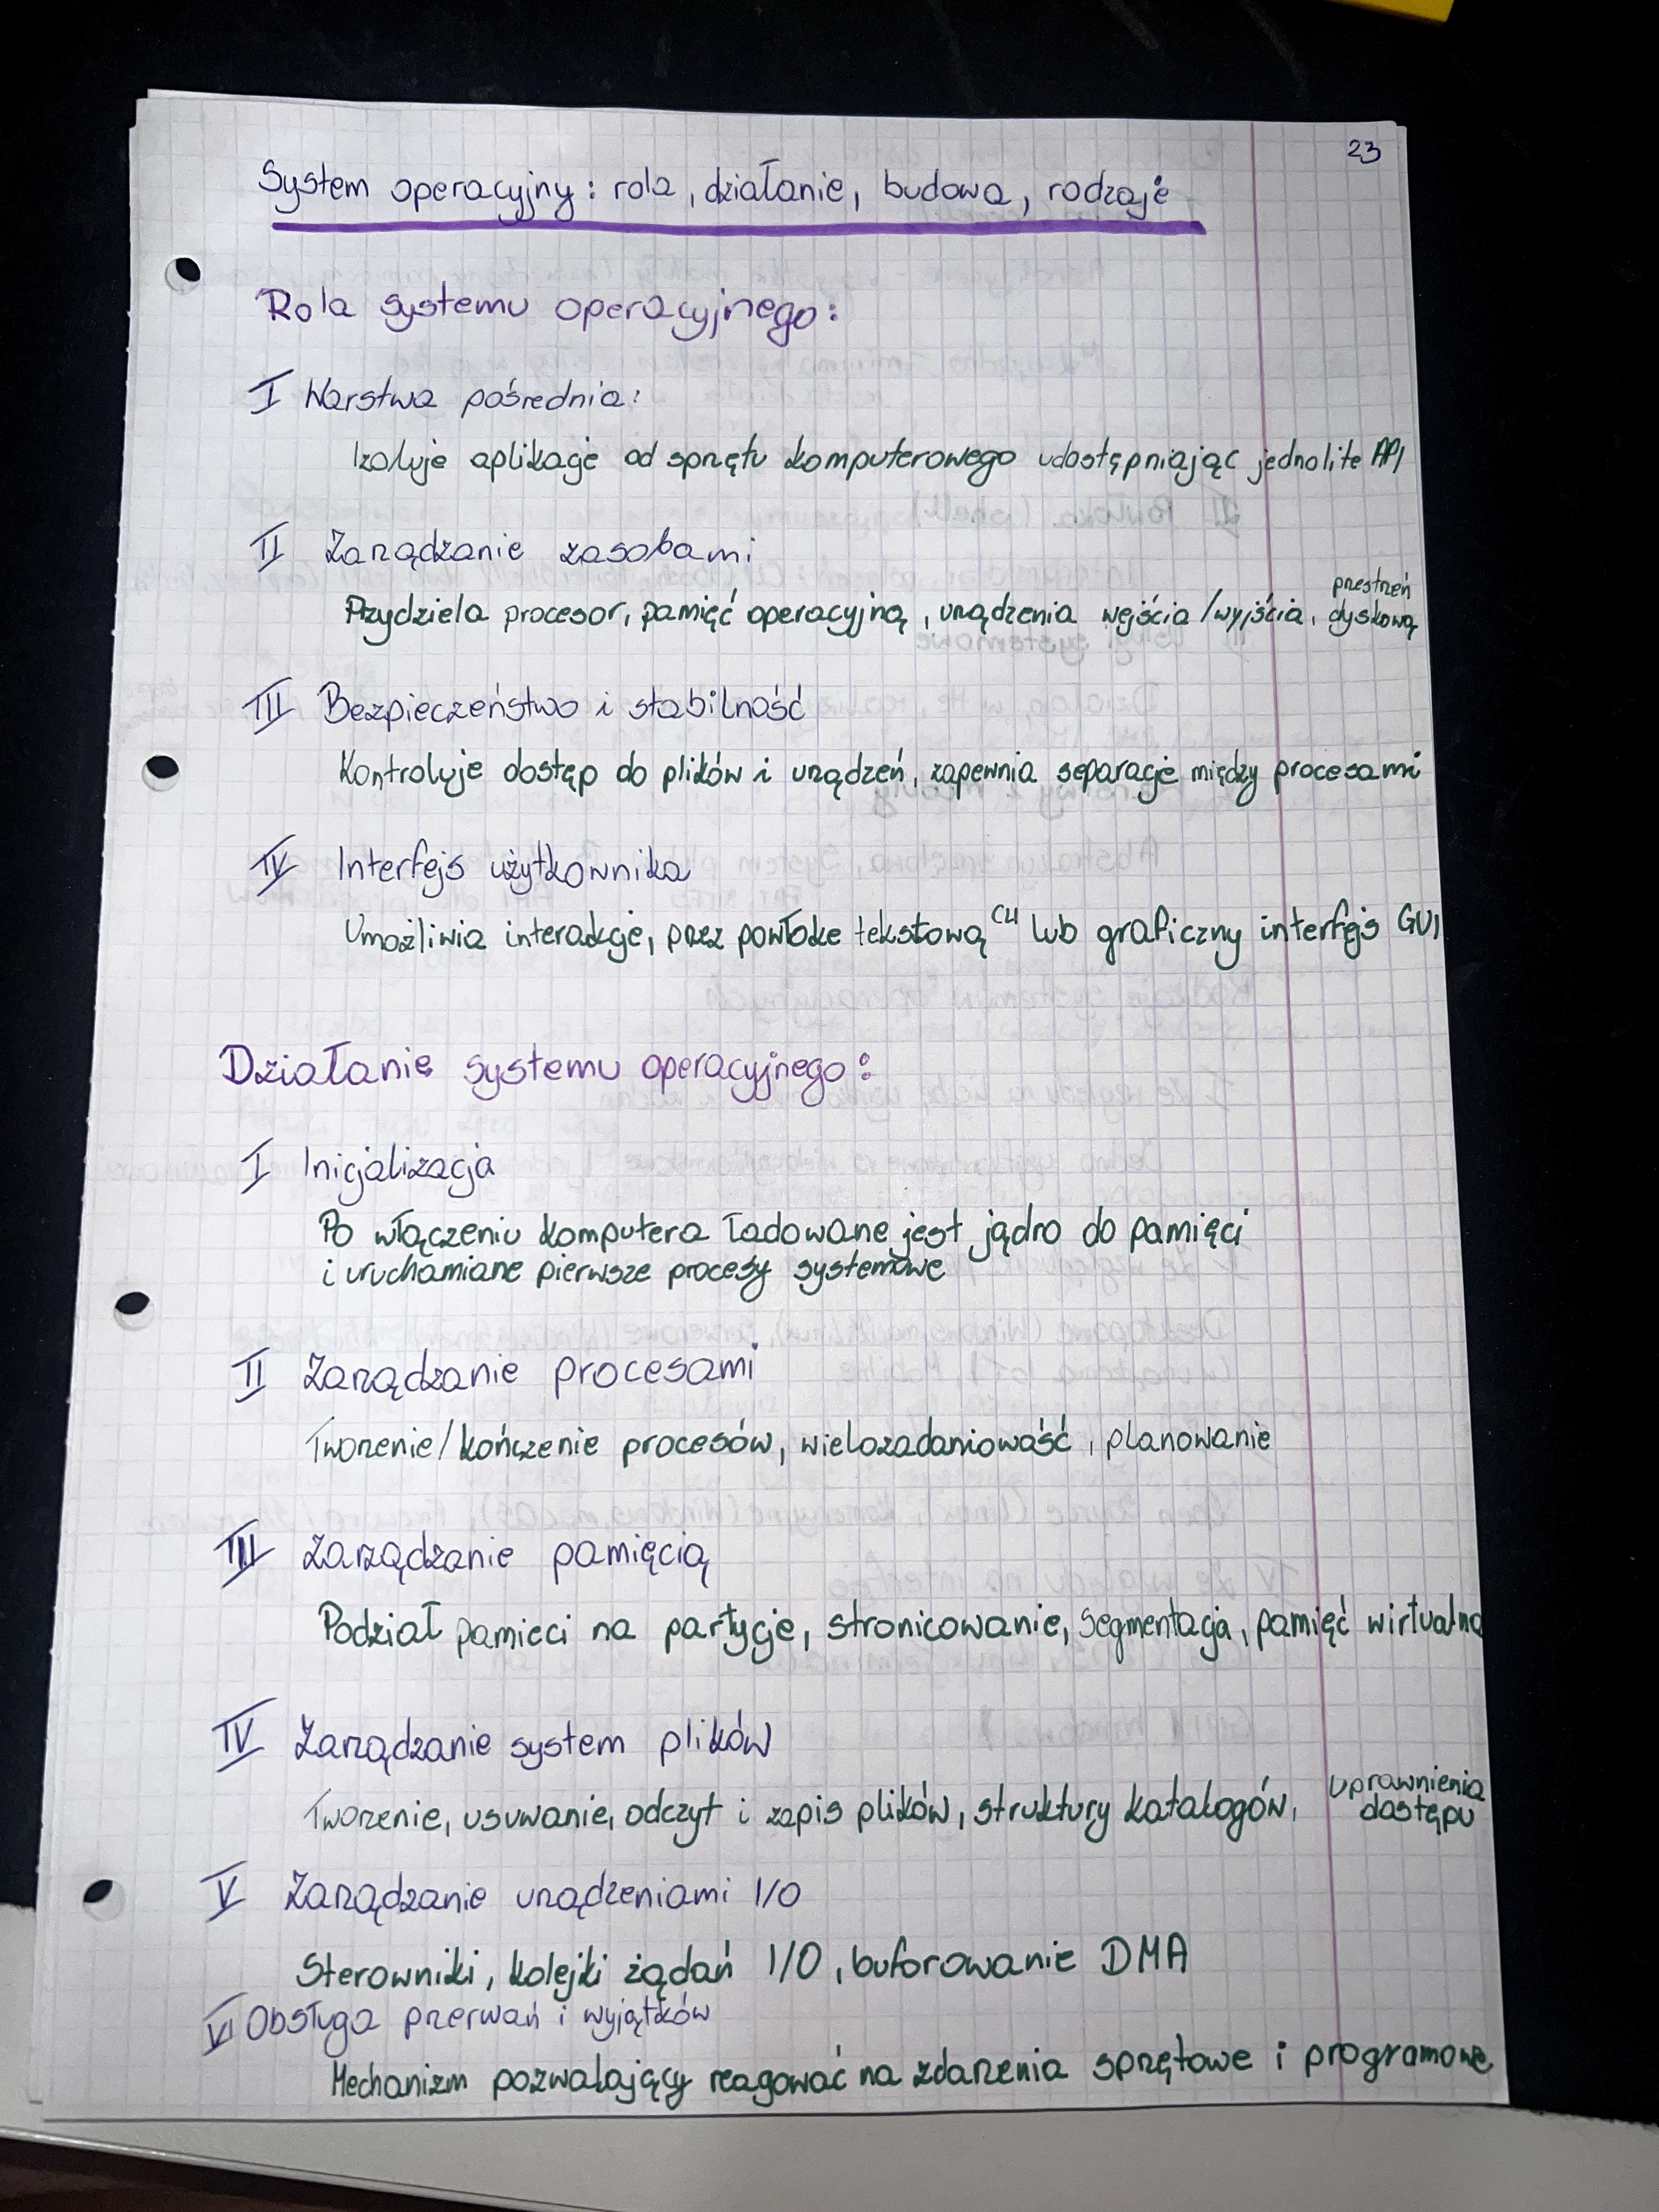 23
System operacyjny: rola, działanie, budowa, rodzaje
Rola systemu operacyjnego:
I Warstwa pośrednia:
Izoluje aplikacje od sprzętu komputerowego udostępniając jednolite API
II Zarządzanie zasobami
Przydziela procesor, pamięć operacyjną, urządzenia wejścia/wyjścia, przestrzeń dyskową
III Bezpieczeństwo i stabilność
Kontroluje dostęp do plików i urządzeń, zapewnia separację między procesami
IV Interfejs użytkownika
Umożliwia interakcje, przez powłokę tekstową CLI lub graficzny interfejs GUI
Działanie systemu operacyjnego:
I Inicjalizacja
Po włączeniu komputera ładowane jest jądro do pamięci
i uruchamiane pierwsze procesy systemowe
II Zarządzanie procesami
Tworzenie/kończenie procesów, wielozadaniowość, planowanie
III Zarządzanie pamięcią
Podział pamieci na partycje, stronicowanie, segmentacja, pamięć wirtualna
IV Zarządzanie system plików
Tworzenie, usuwanie, odczyt i zapis plików, struktury katalogów, uprawnienia dostępu
V Zarządzanie urządzeniami I/O
Sterowniki, kolejki żądań I/O, buforowanie DMA
VI Obsługa przerwań i wyjątków
Mechanizm pozwalający reagować na zdarzenia sprzętowe i programowe